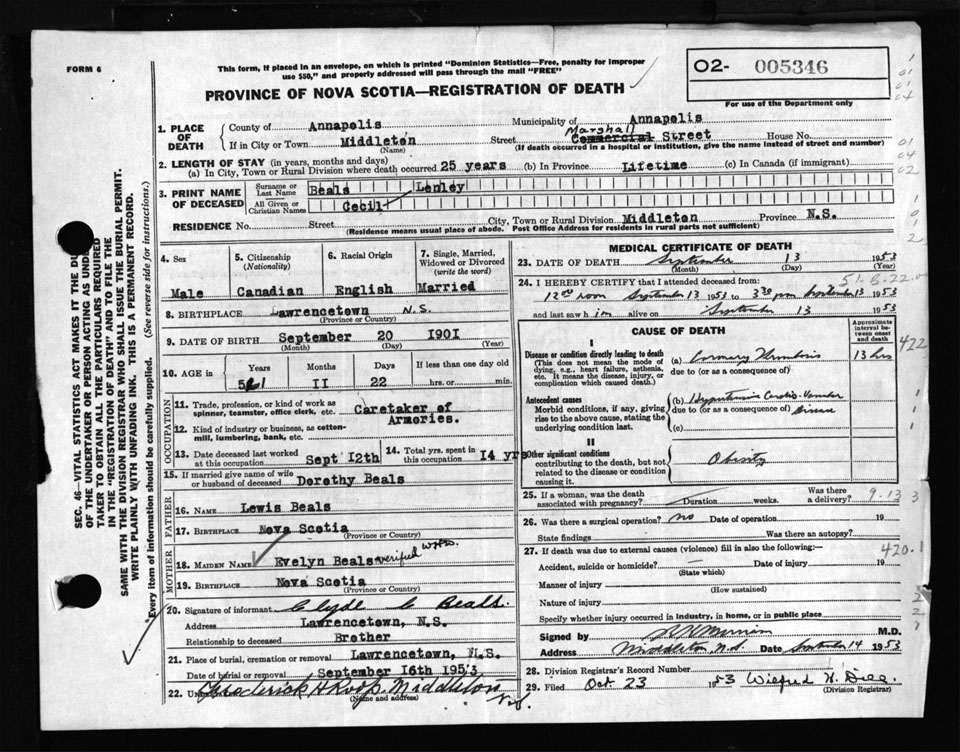 FORM 6
This form, if placed in an envelope, on which is printed "Dominion Statistics—Free, penalty for improper
use $50," and properly addressed will pass through the mail "FREE"
PROVINCE OF NOVA SCOTIA—REGISTRATION OF DEATH
O2- 005346
For use of the Department only
1. PLACE OF DEATH
County of Annapolis Municipality of Annapolis
If in City or Town Middleton Street Commercial Marshall Street House No.
(Name) (If death occurred in a hospital or institution, give the name instead of street and number)
2. LENGTH OF STAY (in years, months and days)
(a) In City, Town or Rural Division where death occurred 25 years (b) In Province Lifetime (c) In Canada (if immigrant)
3. PRINT NAME OF DECEASED
Surname or Last Name Beals Lenley
All Given or Christian Names Cecil
RESIDENCE No. Street City, Town or Rural Division Middleton Province N.S.
(Residence means usual place of abode. Post Office Address for residents in rural parts not sufficient)
4. Sex Male
5. Citizenship (Nationality) Canadian
6. Racial Origin English
7. Single, Married, Widowed or Divorced (write the word) Married
8. BIRTHPLACE Lawrencetown N.S.
(Province or Country)
9. DATE OF BIRTH September 20 1901
(Month) (Day) (Year)
10. AGE in Years 51 Months 11 Days 22 If less than one day old hrs. or min.
OCCUPATION
11. Trade, profession, or kind of work as spinner, teamster, office clerk, etc. Caretaker of Armories.
12. Kind of industry or business, as cotton-mill, lumbering, bank, etc.
13. Date deceased last worked at this occupation Sept 12th
14. Total yrs. spent in this occupation 14 yrs
15. If married give name of wife or husband of deceased Dorothy Beals
FATHER
16. Name Lewis Beals
17. Birthplace Nova Scotia
(Province or Country)
MOTHER
18. Maiden Name Evelyn Beals verified
19. Birthplace Nova Scotia
(Province or Country)
20. Signature of informant Clyde C Beals.
Address Lawrencetown, N.S.
Relationship to deceased Brother
21. Place of burial, cremation or removal Lawrencetown, N.S.
Date of burial or removal September 16th 1953
22. Undertaker Frederick H Roop, Middleton N.S.
(Name and address)
MEDICAL CERTIFICATE OF DEATH
23. DATE OF DEATH September 13 1953
(Month) (Day) (Year)
24. I HEREBY CERTIFY that I attended deceased from:
12 00 noon September 13 1953 to 3 30 pm September 13 1953
and last saw him alive on September 13 1953
CAUSE OF DEATH
Approximate interval between onset and death
I
Disease or condition directly leading to death (a) Coronary Thrombosis 13 hrs
(This does not mean the mode of dying, e.g., heart failure, asthenia, etc. It means the disease, injury, or complication which caused death.)
due to (or as a consequence of)
Antecedent causes (b) Hypertensive Cardio-Vascular Disease
Morbid conditions, if any, giving rise to the above cause, stating the underlying condition last.
due to (or as a consequence of)
(c)
II
Other significant conditions Obesity
contributing to the death, but not related to the disease or condition causing it.
422
25. If a woman, was the death associated with pregnancy? Duration weeks. Was there a delivery? 9.13
26. Was there a surgical operation? no Date of operation 19
State findings Was there an autopsy?
27. If death was due to external causes (violence) fill in also the following:— 420.1
Accident, suicide or homicide? Date of injury 19
(State which)
Manner of injury
(How sustained)
Nature of injury
Specify whether injury occurred in industry, in home, or in public place
Signed by M.D.
Address Middleton, N.S. Date September 14 1953
28. Division Registrar's Record Number
29. Filed Oct. 23 1953 Wilfred H. Dill
(Division Registrar)
SEC. 46—VITAL STATISTICS ACT MAKES IT THE DUTY
OF THE UNDERTAKER OR PERSON ACTING AS UNDER-
TAKER TO OBTAIN ALL THE PARTICULARS REQUIRED
IN THE "REGISTRATION OF DEATH" AND TO FILE THE
SAME WITH THE DIVISION REGISTRAR WHO SHALL ISSUE THE BURIAL PERMIT.
WRITE PLAINLY WITH UNFADING INK. THIS IS A PERMANENT RECORD.
*Every item of information should be carefully supplied. (See reverse side for instructions.)